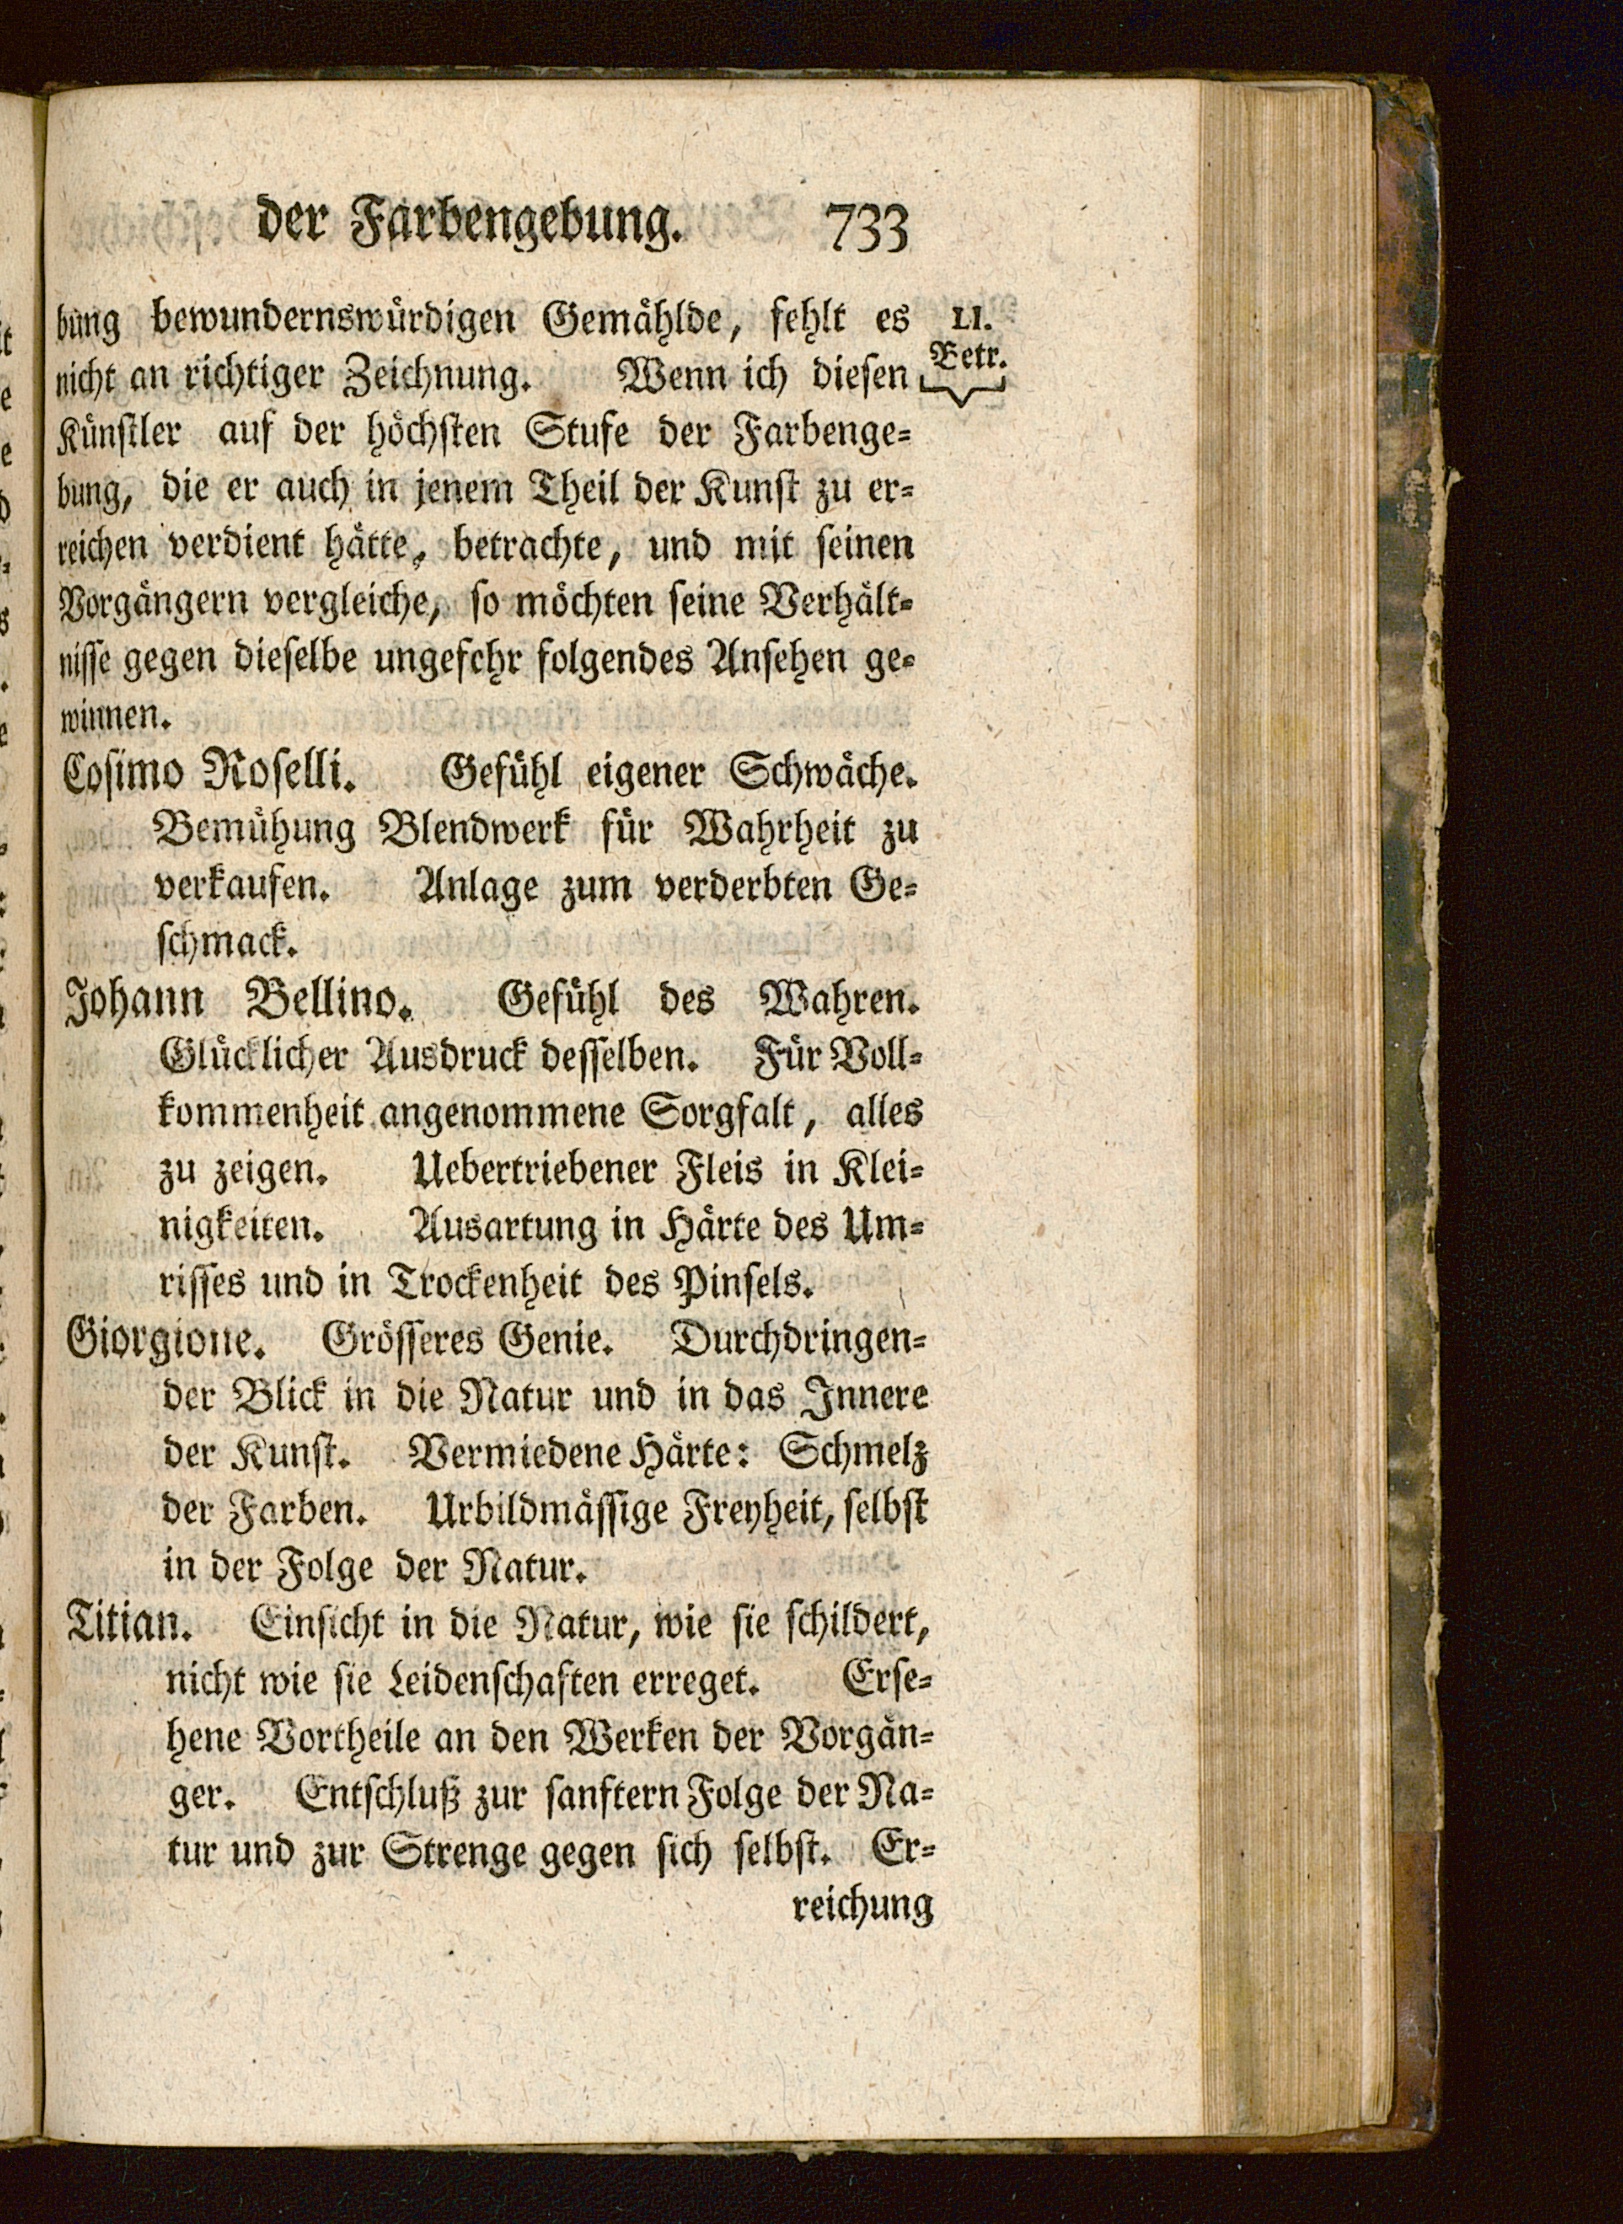 der Farbengebung. 733
bung bewundernswürdigen Gemählde, fehlt es LI.
nicht an richtiger Zeichnung. Wenn ich diesen Betr.
Künstler auf der höchsten Stufe der Farbenge-
bung, die er auch in jenem Theil der Kunst zu er-
reichen verdient hätte, betrachte, und mit seinen
Vorgängern vergleiche, so möchten seine Verhält-
nisse gegen dieselbe ungefehr folgendes Ansehen ge-
winnen.
Cosimo Roselli. Gefühl eigener Schwäche.
Bemühung Blendwerk für Wahrheit zu
verkaufen. Anlage zum verderbten Ge-
schmack.
Johann Bellino. Gefühl des Wahren.
Glücklicher Ausdruck desselben. Für Voll-
kommenheit angenommene Sorgfalt, alles
zu zeigen. Uebertriebener Fleis in Klei-
nigkeiten. Ausartung in Härte des Um-
risses und in Trockenheit des Pinsels.
Giorgione. Grösseres Genie. Durchdringen-
der Blick in die Natur und in das Innere
der Kunst. Vermiedene Härte: Schmelz
der Farben. Urbildmässige Freyheit, selbst
in der Folge der Natur.
Titian. Einsicht in die Natur, wie sie schildert,
nicht wie sie Leidenschaften erreget. Erse-
hene Vortheile an den Werken der Vorgän-
ger. Entschluß zur sanftern Folge der Na-
tur und zur Strenge gegen sich selbst. Er-
reichung